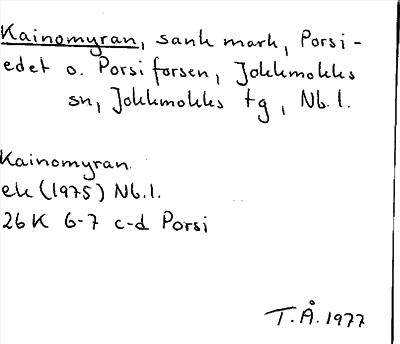 Kainomyran, sank mark, Porsi-
edet o. Porsiforsen, Jokkmokks
sn, Jokkmokks tg, Nb. l.
Kainomyran
ek (1975) Nb. l.
26 K 6-7 c-d Porsi
T. Å. 1977